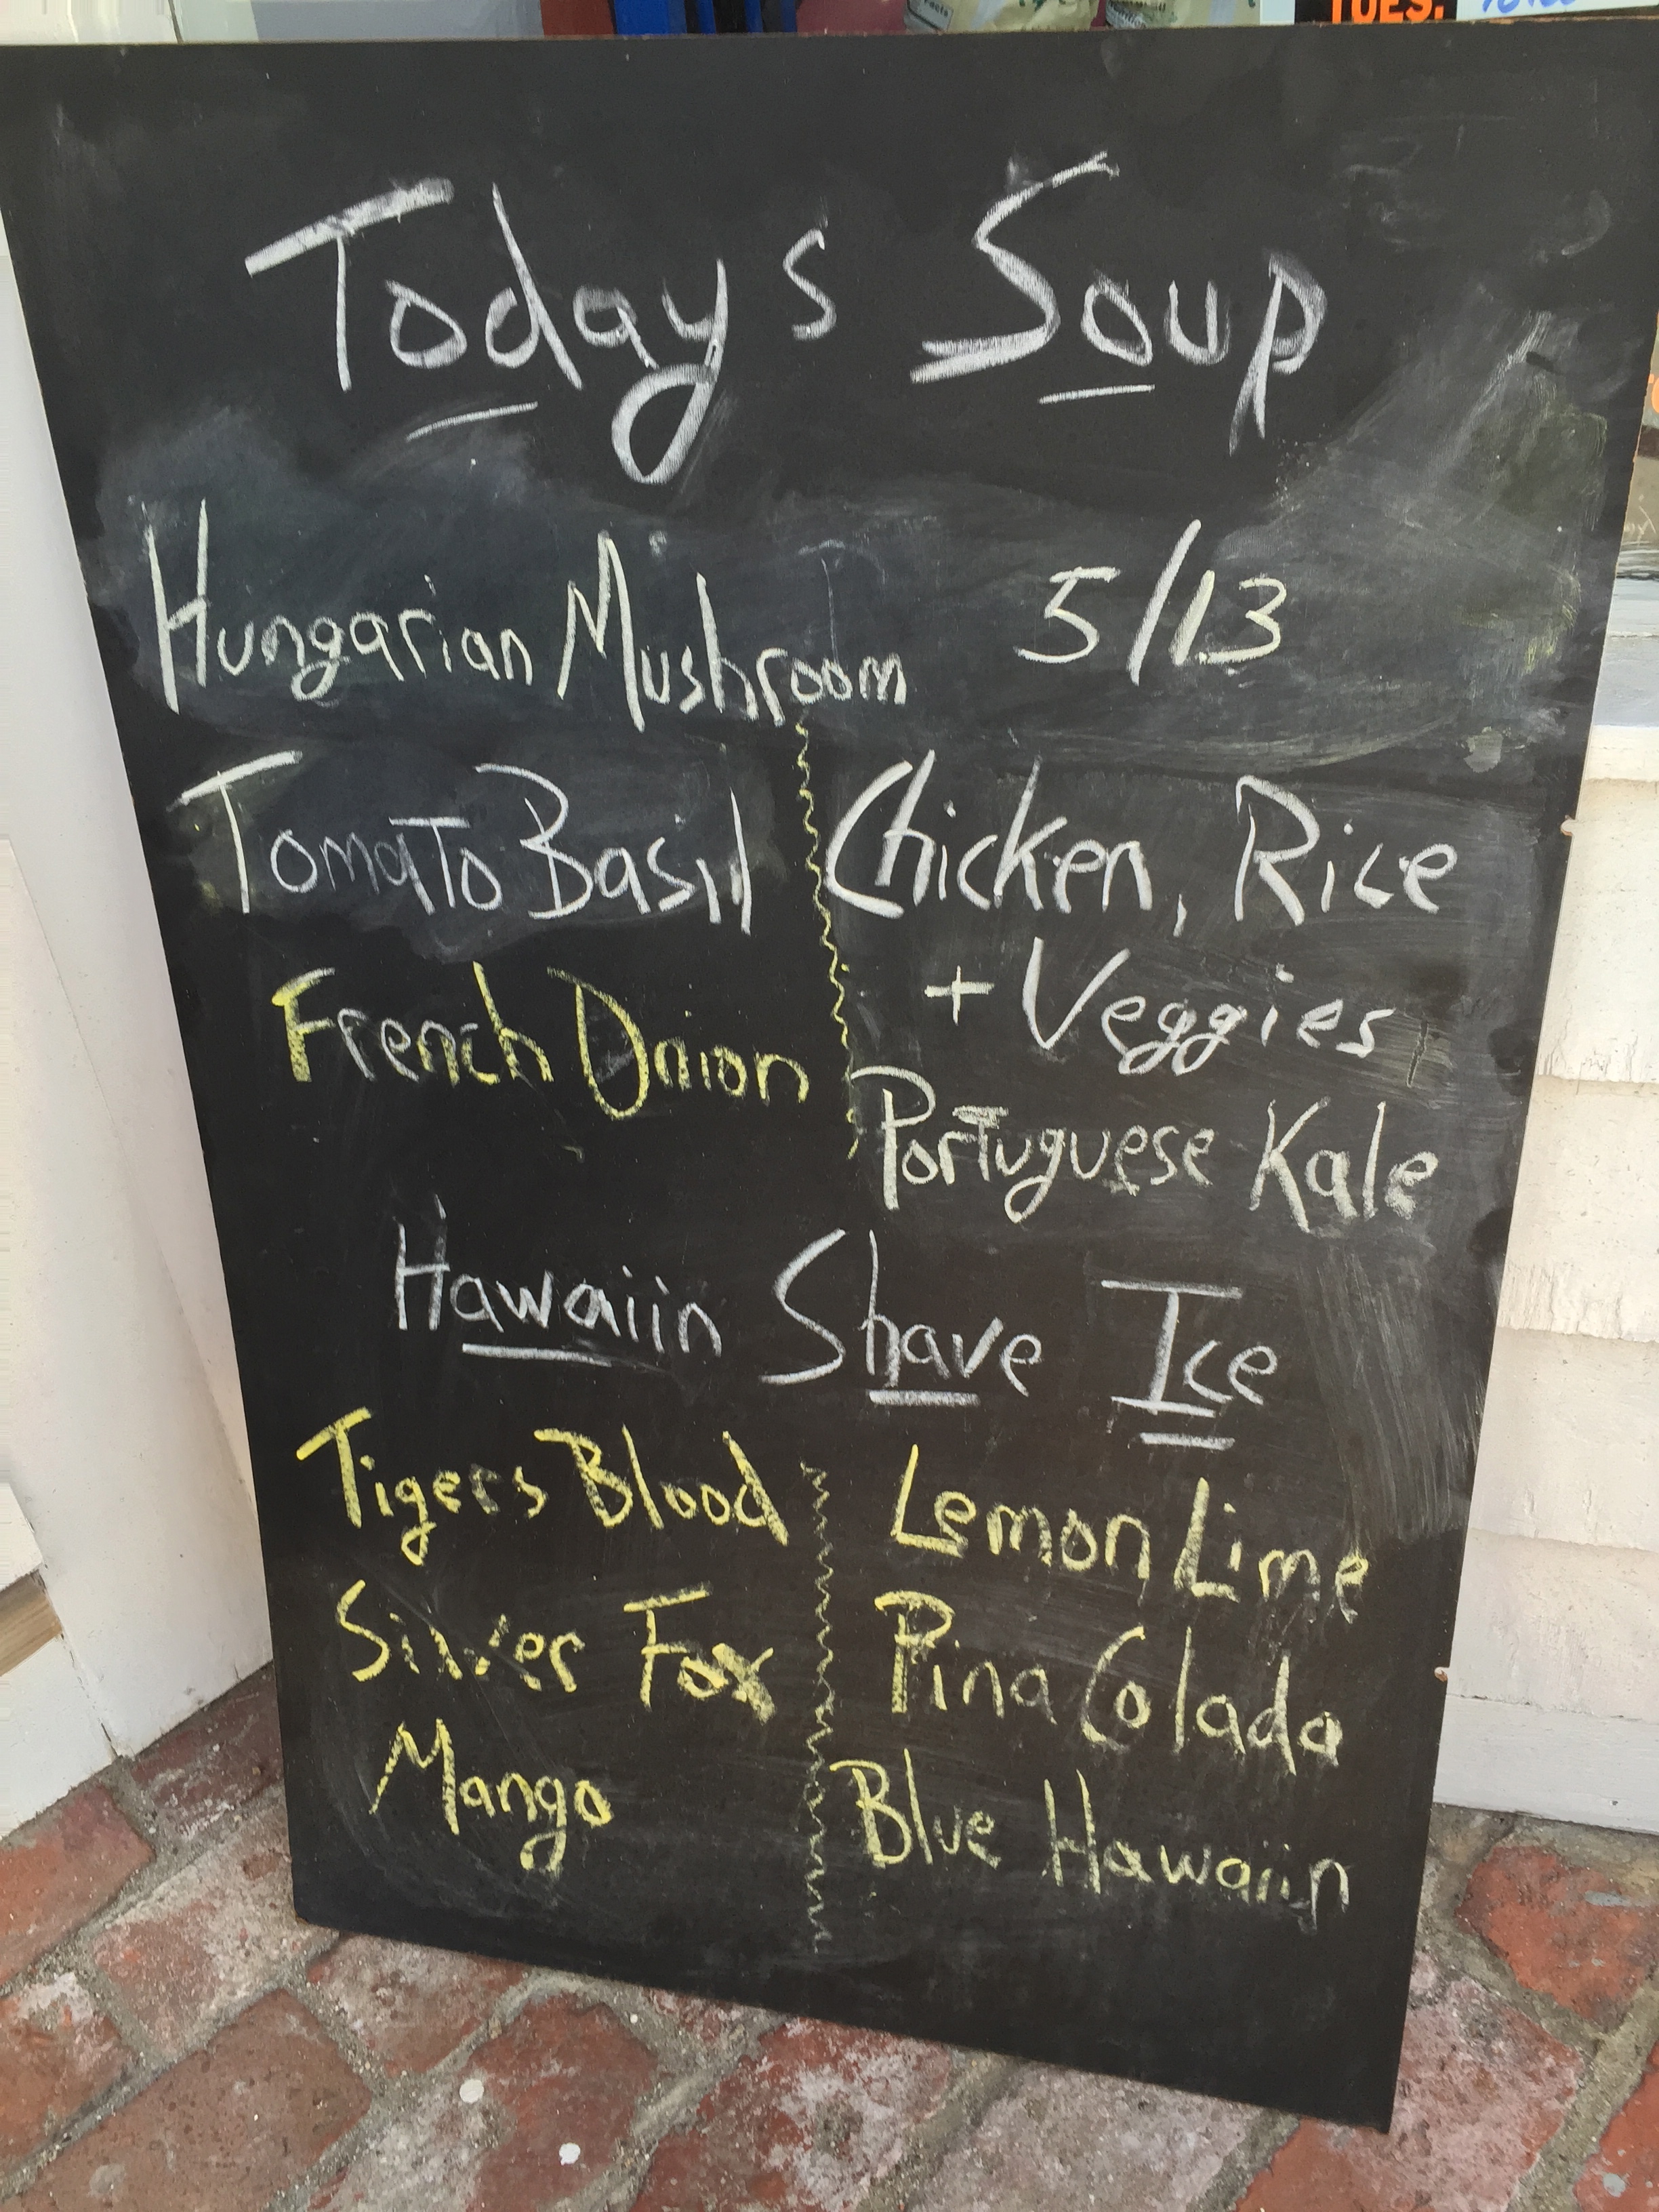 TUES.
Todays Soup
Hungarian Mushroom 5/13
Tomato Basil
French Onion
Chicken, Rice
+ Veggies
Portuguese Kale
Hawaiin Shave Ice
Tigers Blood
Silver Fox
Mango
Lemon Lime
Pina Colada
Blue Hawaiin